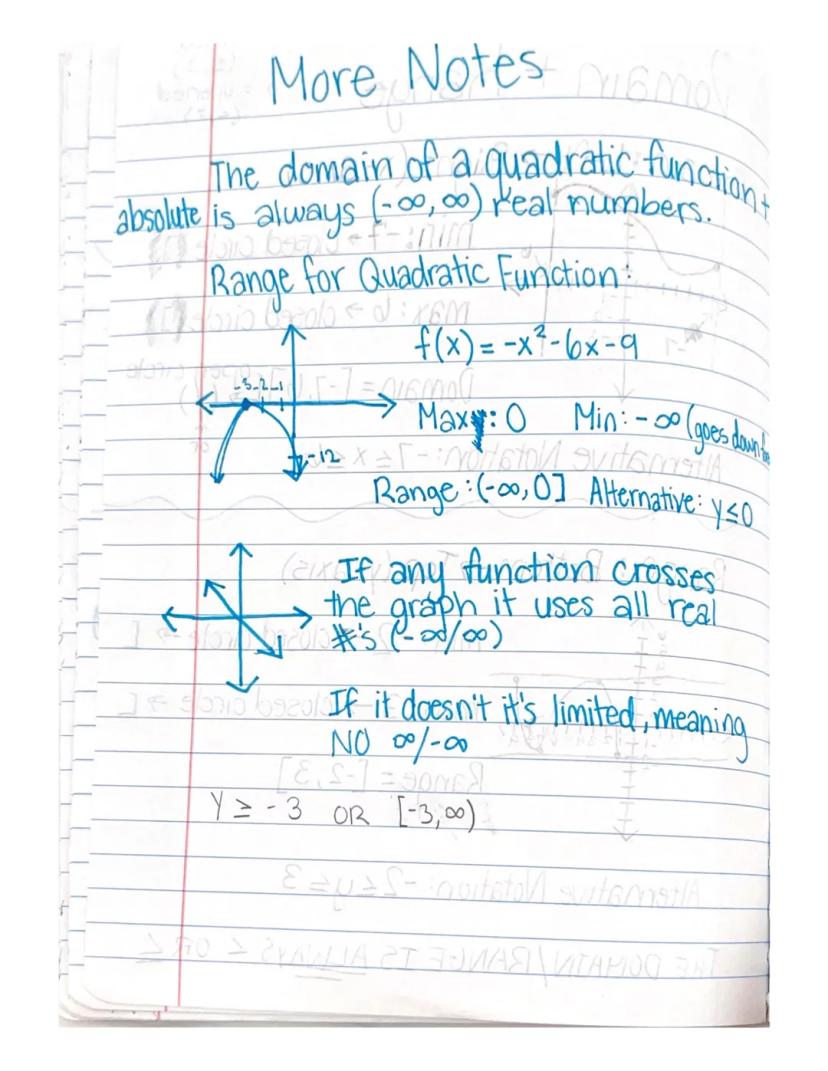 More Notes
The domain of a quadratic function +
absolute is always (-∞, ∞) real numbers.
Range for Quadratic Function:
f(x) = -x² - 6x - 9
-3 -2 -1
Max y: 0 Min: -∞ (goes down
-12
Range: (-∞, 0] Alternative: y ≤ 0
If any function crosses
the graph it uses all real
#'s (-∞/∞)
If it doesn't it's limited, meaning
NO ∞/-∞
Y ≥ -3 OR [-3, ∞)